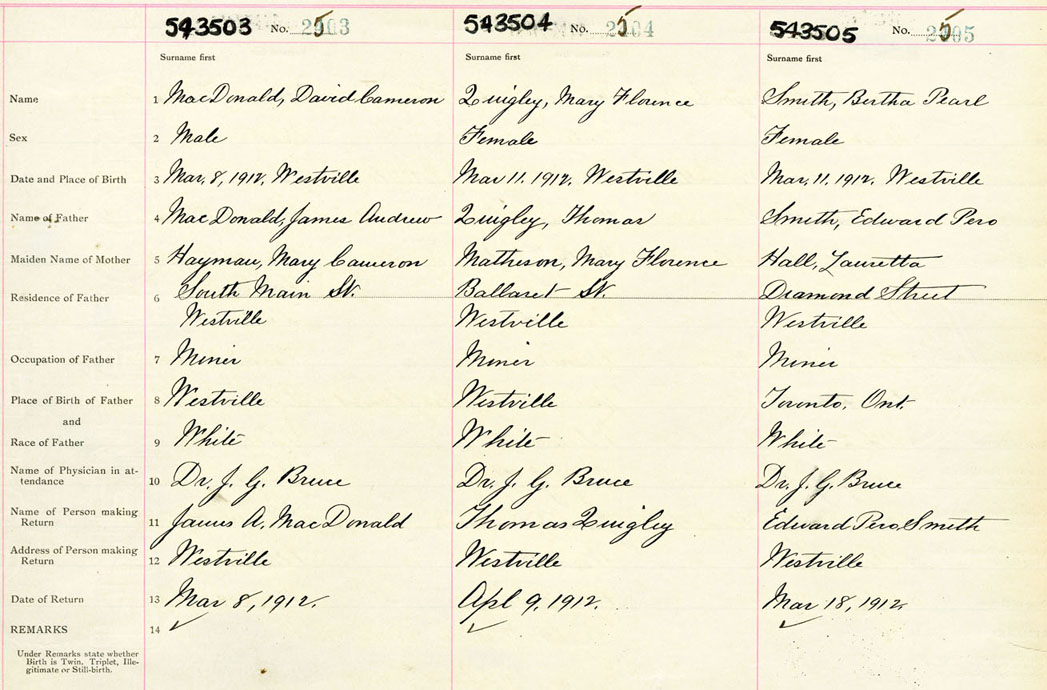 543503 No. 2503 543504 No. 2504 543505 No. 2505
Surname first Surname first Surname first
Name 1 MacDonald, David Cameron Quigley, Mary Florence Smith, Bertha Pearl
Sex 2 Male Female Female
Date and Place of Birth 3 Mar. 8, 1912. Westville Mar 11. 1912. Westville Mar. 11. 1912. Westville
Name of Father 4 MacDonald, James Andrew Quigley, Thomas Smith, Edward Pero
Maiden Name of Mother 5 Hayman, Mary Cameron Matheson, Mary Florence Hall, Lauretta
Residence of Father 6 South Main St. Ballarat St. Diamond Street
Westville Westville Westville
Occupation of Father 7 Miner Miner Miner
Place of Birth of Father 8 Westville Westville Toronto, Ont.
and
Race of Father 9 White White White
Name of Physician in at-
tendance 10 Dr. J. G. Bruce Dr. J. G. Bruce Dr. J. G. Bruce
Name of Person making
Return 11 James A. MacDonald Thomas Quigley Edward Pero Smith
Address of Person making
Return 12 Westville Westville Westville
Date of Return 13 Mar 8, 1912. Apl 9. 1912. Mar 18, 1912
REMARKS 14 ✓ ✓ ✓
Under Remarks state whether
Birth is Twin, Triplet, Ille-
gitimate or Still-birth.